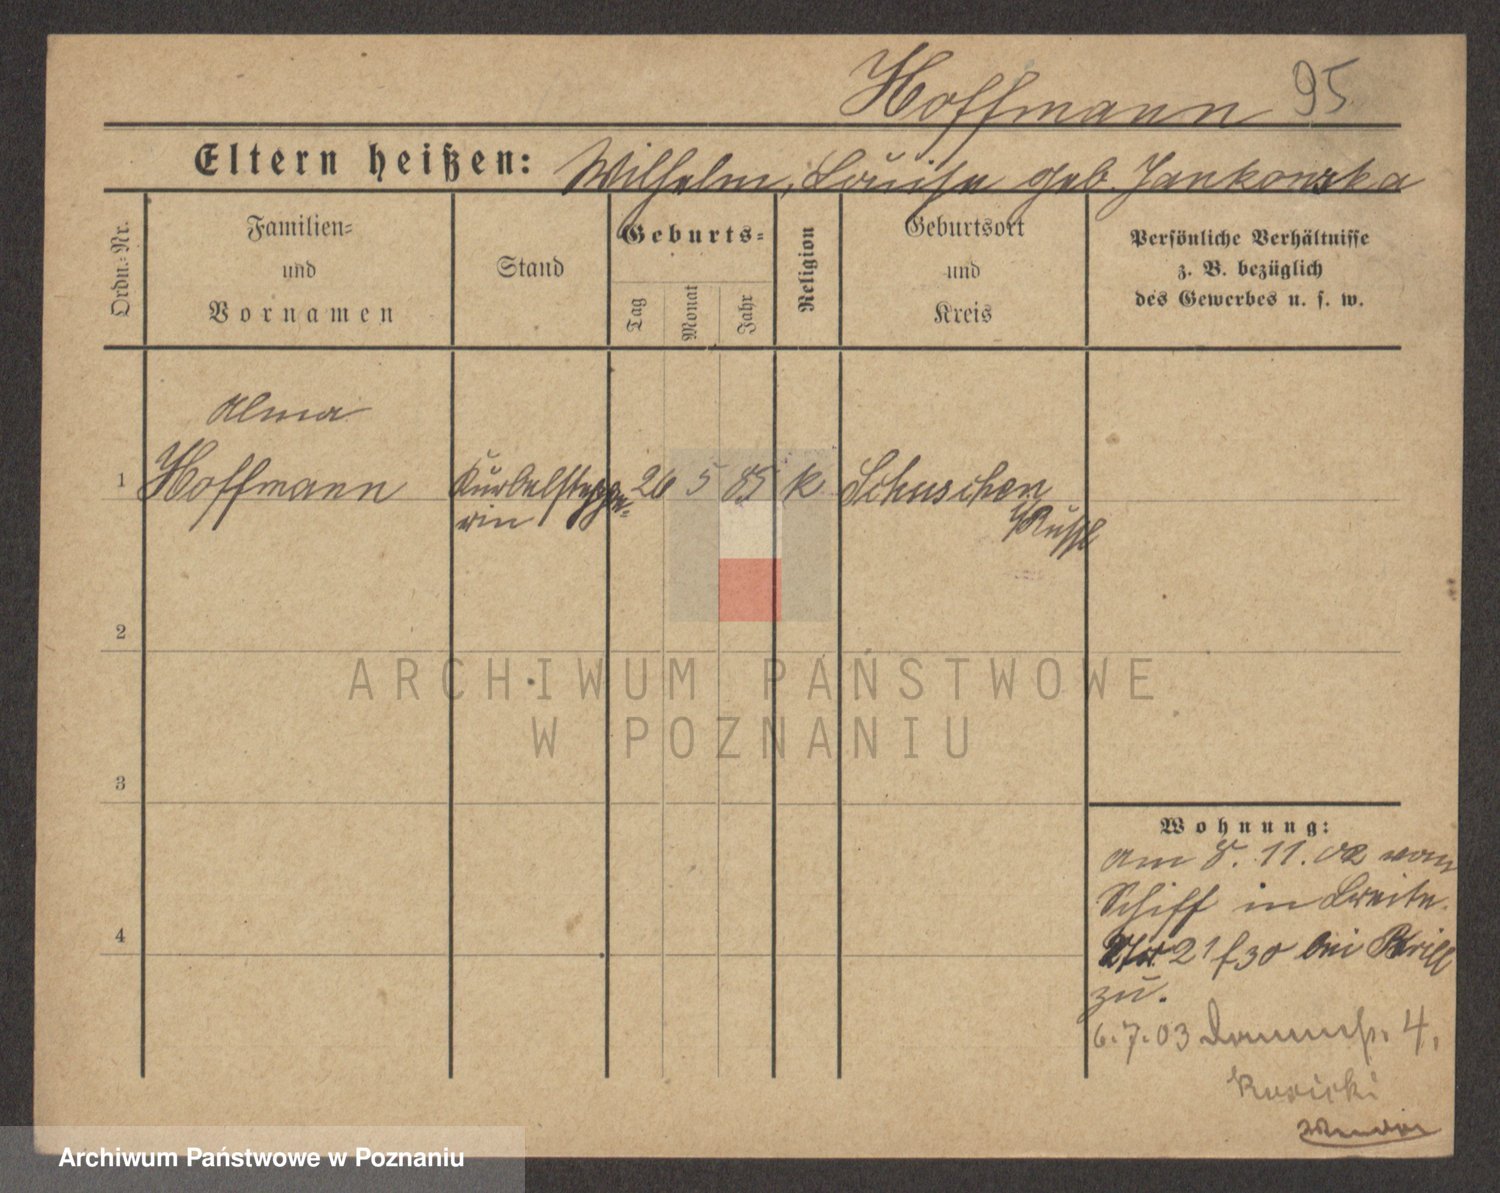 Hoffmann 95
Eltern heißen: Wilhelm, Louise geb. Jankowska
Ordn.-Nr.
Familien-
und
Vornamen
Stand
Geburts-
Tag
Monat
Jahr
Religion
Geburtsort
und
Kreis
Persönliche Verhältnisse
z. B. bezüglich
des Gewerbes u. s. w.
Alma
1 Hoffmann Kurbelsteppe- 26 5 85 k Schuschen
rin i/Russl
2
3
4
ARCHIWUM PAŃSTWOWE
W POZNANIU
Wohnung:
Am 8. 11. 02 von
Schiff in Breite.
21 f30 bei Krill
zu.
6. 7. 03 4,
Archiwum Państwowe w Poznaniu